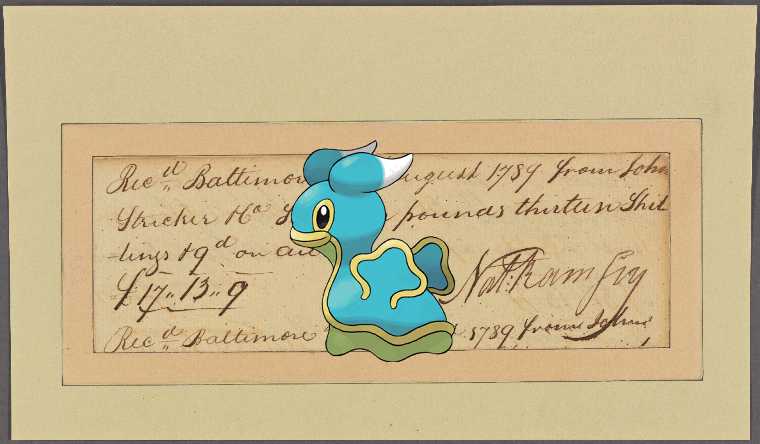 Rec d Baltimor ugust 1789 from John
Stricker pounds thirteen Shil
lings & 9d on
£ 17.. 13.. 9
Nat: Ramsey
Rec d Baltimore 1789 from John